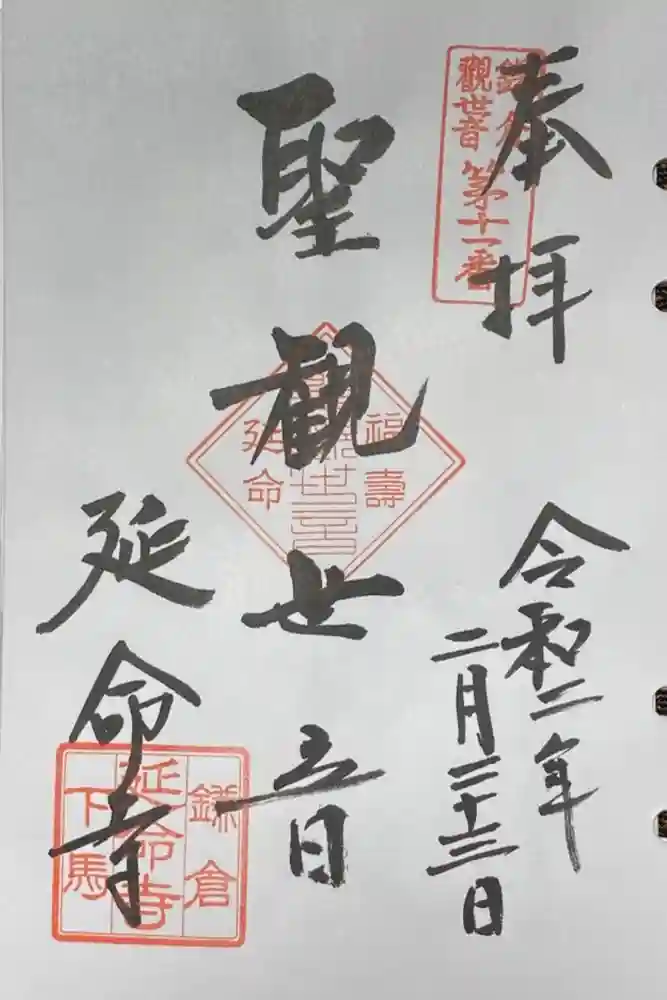 奉拝
鎌倉
觀世音
第十一番
令和二年
二月二十三日
聖観世音
福壽
延命
延命寺
鎌倉
延命寺
下馬